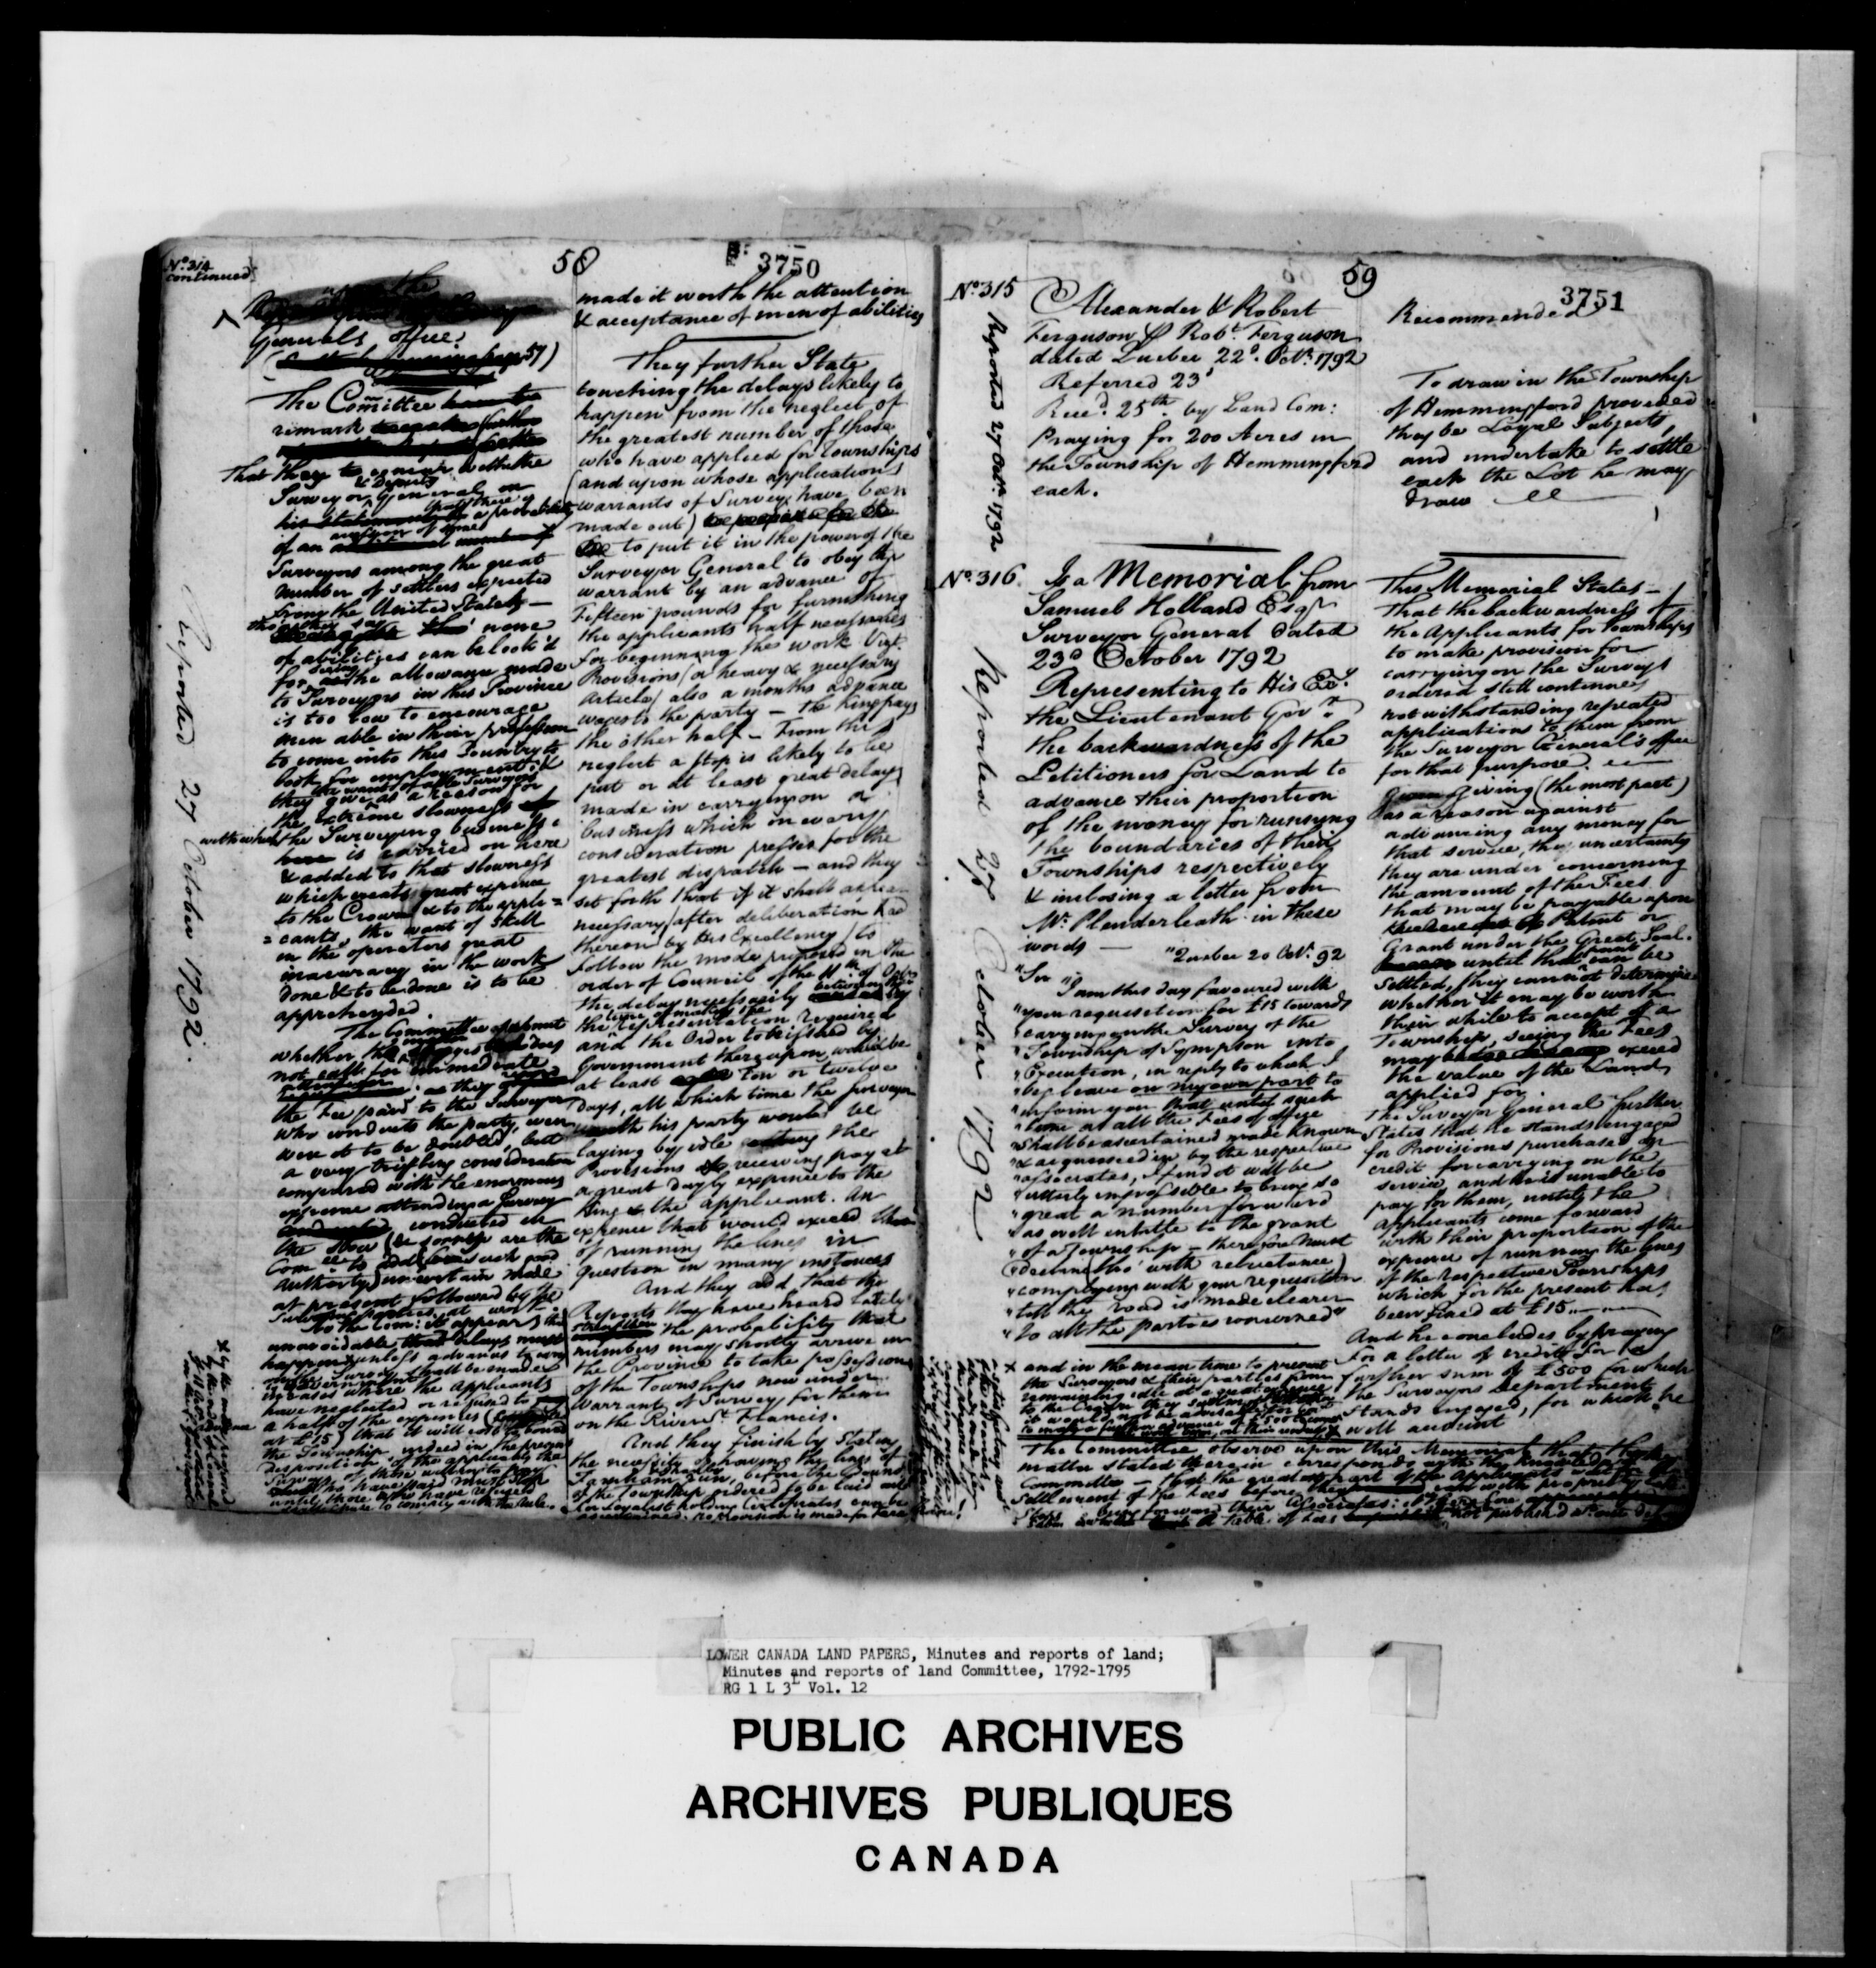 No. 314
continued
58
3750
the
Generals office.
The Comittee
remark
That they
Surveyor General on
of an
Surveyors among the great
number of settlers expected
from the United States —
none
of abilities can be look'd
for the allowance made
to Surveyors in this Province
is too low to encourage
men able in their profession
to come into this Country to
look for employment; &
they give as a reason for
the extreme slowness
with which the Surveying business
is carried on here
& added to that slowness
which creates great expence
to the Crown & to the appli=
=cants, the want of skill
in the operators great
inaccuracy in the work
done & to be done is to be
apprehended.
The Committee submit
whether the
not call for immediate
as they
the Fee paid to the Surveyor
who conducts the party, even
were it to be doubled, but
a very trifling consideration
compared with the enormous
expence attending a Survey
conducted in
the slow
authority) uncertain mode
at present followed by the
Surveying parties at work.
To the Com: it appears
unavoidable delays must
happen unless advances
in cases where the Applicants
have neglected or refused to
a half of the expences
at £15
the Township, indeed in the present
disposition of the applicants the
Surveys of those willing to pay
until those who have refused
Reported 27 October 1792.
made it worth the attention
& acceptance of men of abilities
They further State
touching the delays likely to
happen from the neglect of
the greatest number of those
who have applied for Townships
(and upon whose applications
warrants of Survey have been
made out)
to put it in the power of the
Surveyor General to obey the
warrant by an advance of
Fifteen pounds for furnishing
the applicants half necessaries
for beginning the work Vizt.
Provisions (or heavy & necessary
Articles) also a months advance
wages to the party — The King pays
the other half — From this
neglect a stop is likely to be
put or at least great delay
made in carrying on a
business which in every
consideration presses for the
greatest dispatch — and they
set forth that if it shall appear
necessary (after deliberation had
thereon by His Excellency) to
follow the mode proposed in the
order of Council of the 11th of Octr.
the delay necessarily between the
time of making the
the representation required
and the Order to be issued by
Government thereupon, would be
at least Ten or twelve
days, all which time the Surveyor
with his party would be
laying by idle the
Provisions & receiving pay at
a great dayly expence to the
King & the applicant. An
expence that would exceed that
of running the lines in
question in many instances
And they add, that the
Reports they have heard lately
strengthen the probability that
numbers may shortly arrive in
the Province to take possession
of the Townships now under
Warrant of Survey for them
on the River St. Francis.
And they finish by stating
the necessity of having the lines of
Farnham run, before the Grounds
of the Township ordered to be laid out
for Loyalists holding Certificates can be
ascertained. no provision is made for
59
3751
No. 315
Alexander & Robert
Ferguson Robt. Ferguson
dated Quebec 22d. Octr. 1792
Referred 23d
Recd. 25th. by Land Com:
Praying for 200 Acres in
the Township of Hemmingford
each.
Reported 27 Octr. 1792
Recommended
To draw in the Township
of Hemmingford provided
they be Loyal Subjects,
and undertake to settle
each the Lot he may
draw
No. 316
Is a Memorial from
Samuel Holland Esqr
Surveyor General dated
23d October 1792
Representing to His Exy.
the Lieutenant Govr.
the backwardness of the
Petitioners for Land to
advance their proportion
of the money for running
the boundaries of their
Townships respectively
& inclosing a letter from
Mr. Plenderleath in these
words —
"Quebec 20 Octr. 92
"Sir
"I am this day favoured with
"your requisition for £15 towards
"carrying on the Survey of the
"Township of Sympson into
"Execution, in reply to which I
"beg leave on my own part to
"inform you that until such
"time as all the Fees of office
"shall be ascertained made known
"& acquiesced in by the respective
"associates, I find it will be
"utterly impossible to bring so
"great a number forward
"as will intitle to the grant
"of a Township — therefore must
"decline (tho' with reluctance)
"complying with your requisition
"till the road is made clearer
"to all the parties concerned"
Reported 27 October 1792
This Memorial States —
That the backwardness of
the Applicants for Townships
to make provision for
carrying on the Surveys
ordered still continues,
notwithstanding repeated
applications to them from
the Surveyor General's office
for that purpose.
giving (the most part)
as a reason against
advancing any money for
that service, the uncertainty
they are under concerning
the amount of the Fees
that may be payable upon
Patent or
Grant under the Great Seal.
until that point can be
settled, they cannot determine
whether it may be worth
their while to accept of a
Township, seeing the Fees
may exceed
the value of the Land
applied for.
The Surveyor General further
States that he stands engaged
for Provisions purchased on
credit for carrying on the
service, and he is unable to
pay for them, untill the
Applicants come forward
with their proportion of the
expence of running the lines
of the respective Townships
which for the present has
been fixed at £15.
And he concludes by praying
for a letter of credit for
further sum of £500 for which
the Surveyors Department
stands engaged, for which he
will account
x and in the mean time to prevent
the Surveyors & their parties from
remaining idle at a great expence
to the Crown they submit whether
it would not be advisable for Govt.
to make a further advance of £500
The Committee observe upon this Memorial that the
matter stated therein corresponds with the knowledge of the
Committee — that the greatest part of the Applicants want the
Settlement of the Fees before they can with propriety take
Steps bring forward their Associates:
a table of Fees not published
LOWER CANADA LAND PAPERS, Minutes and reports of land;
Minutes and reports of land Committee, 1792-1795
RG 1 L 3L Vol. 12
PUBLIC ARCHIVES
ARCHIVES PUBLIQUES
CANADA